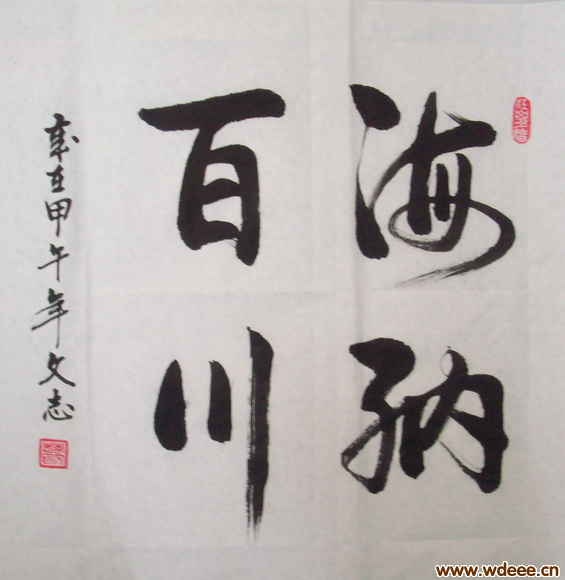 海纳
百川
岁在甲午年文志
www.wdeee.cn